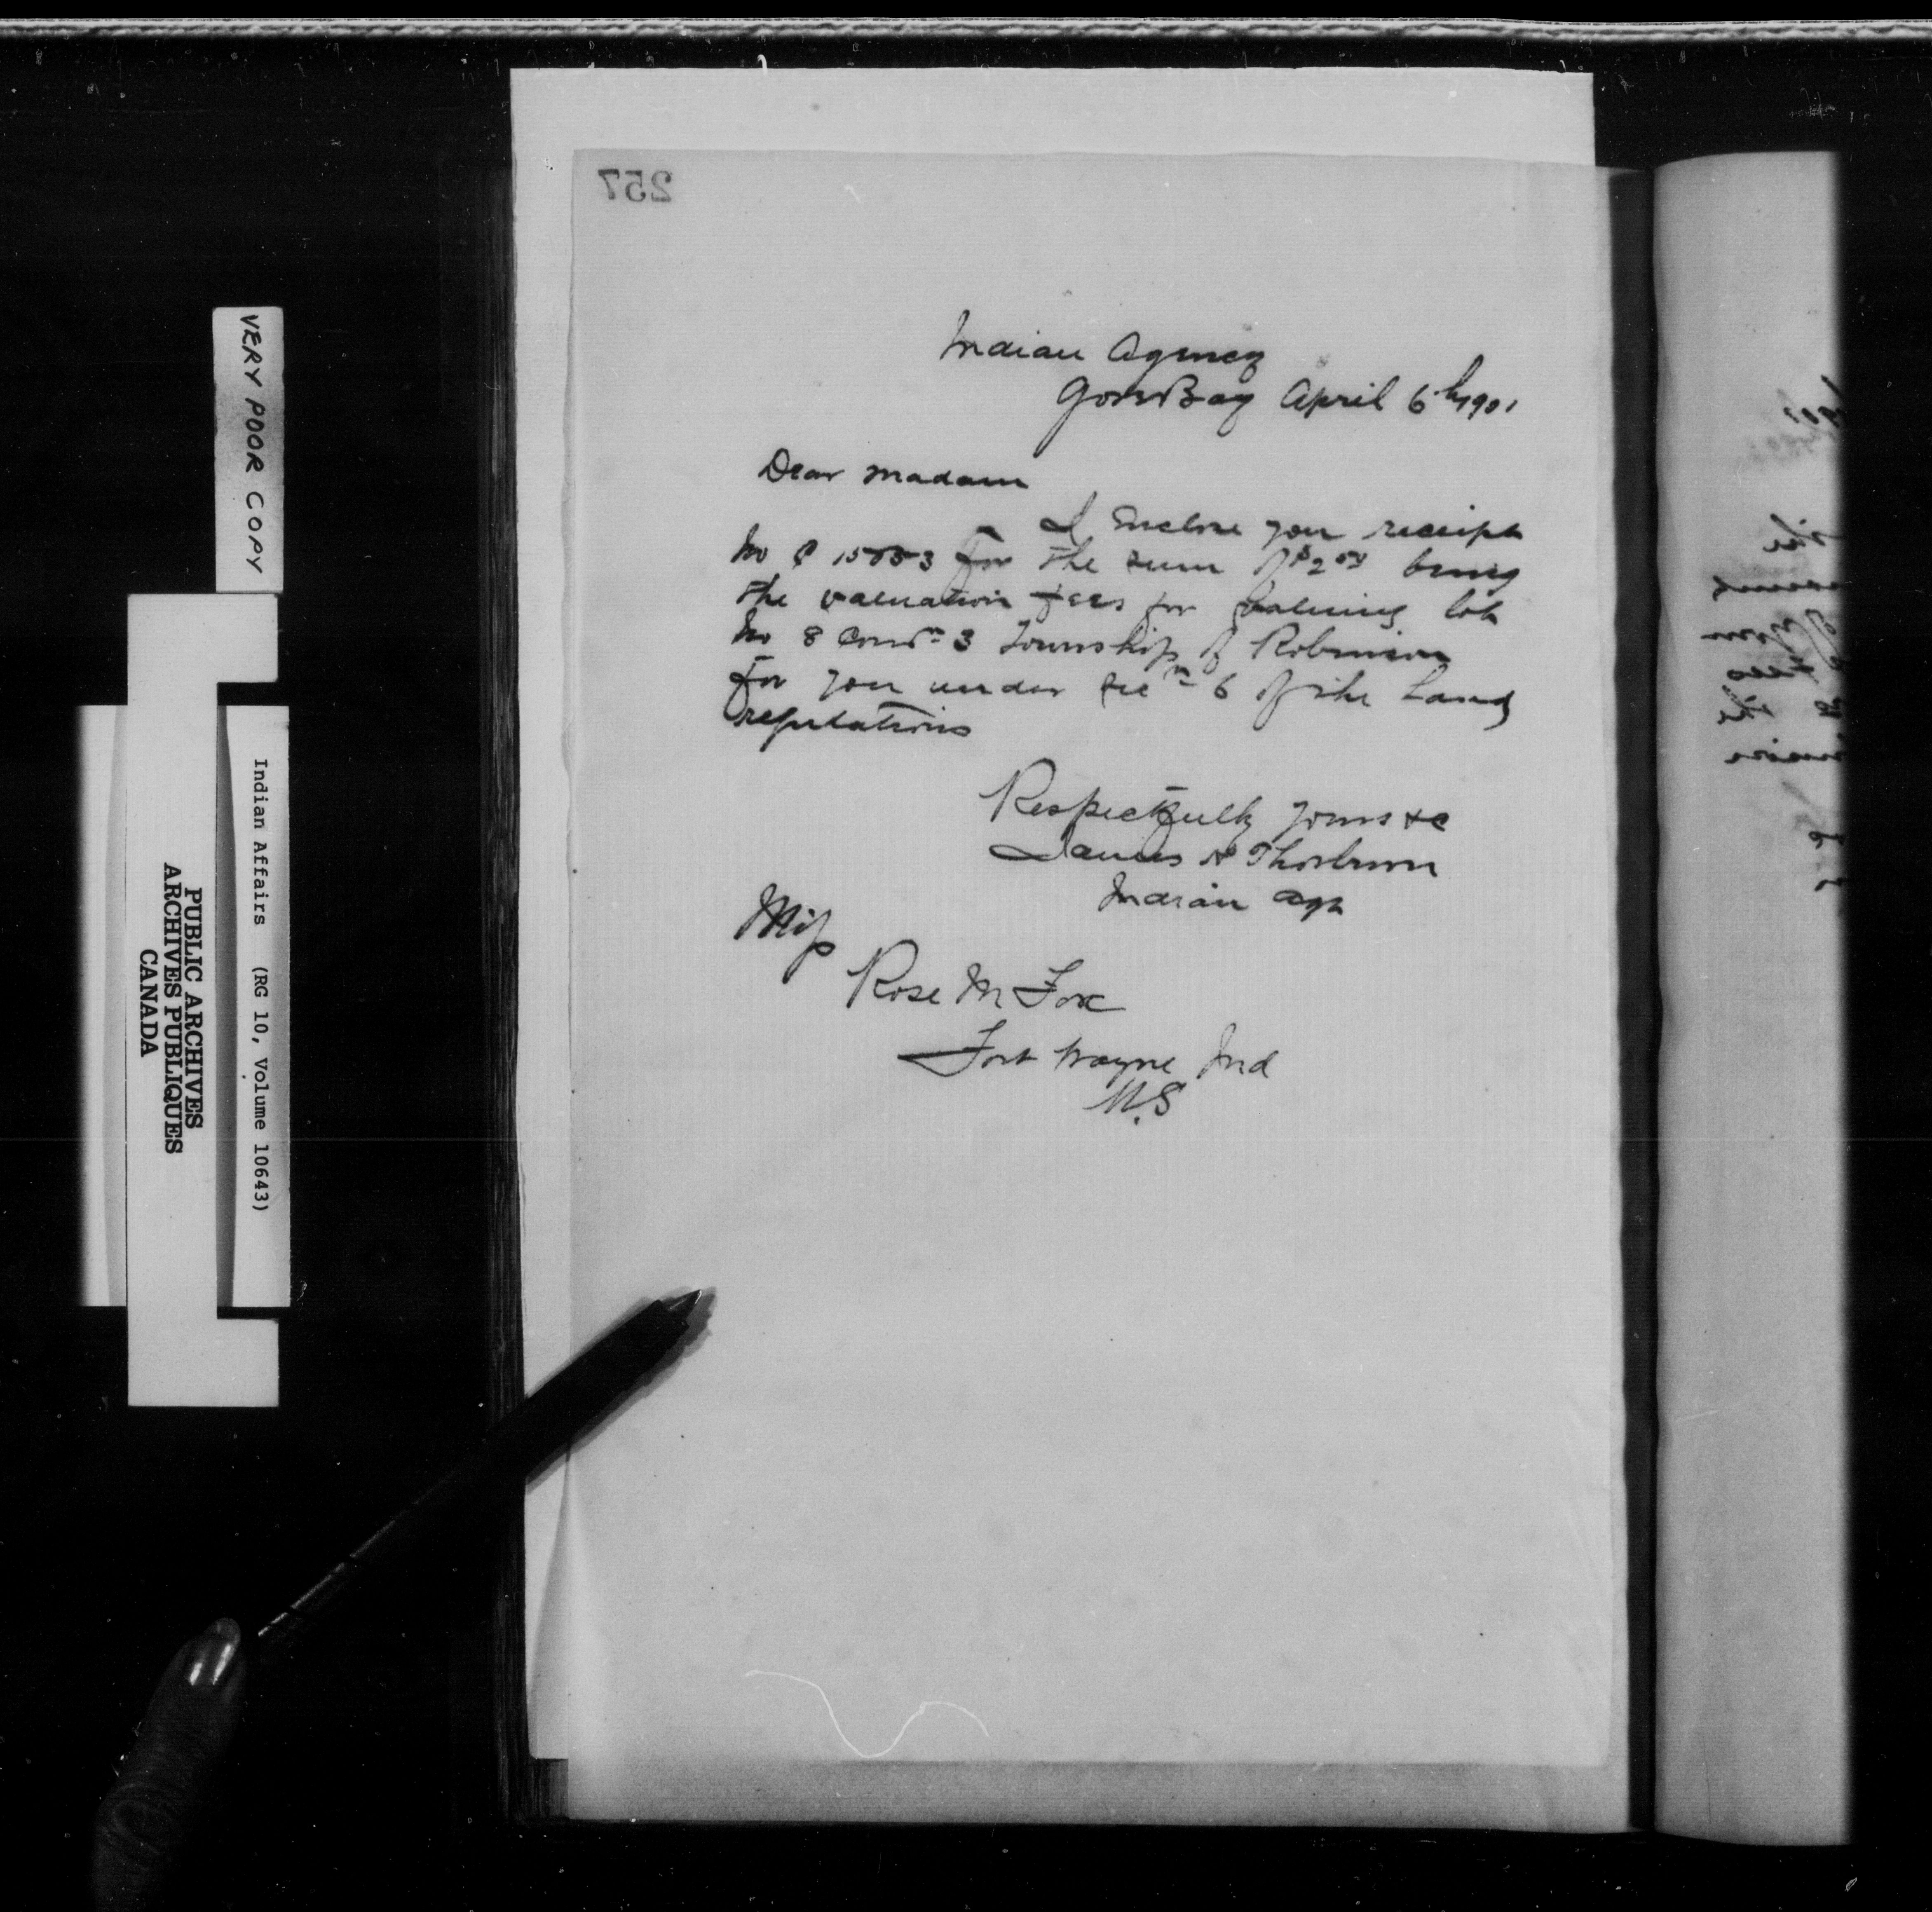 257
Indian Agency
Gore Bay April 6th 1901
Dear Madam
I Enclose you receipt
No C 15053 for the sum of $2.00 being
the valuation fees for valuing lot
No 8 Conn 3 Township of Robinson
for you under secn 6 of the Land
regulations
Respectfully yours &c
James H Thorburn
Indian Agt
Miss
Rose M Fox
Fort Wayne Ind
U.S
VERY POOR COPY
Indian Affairs (RG 10, Volume 10643)
PUBLIC ARCHIVES
ARCHIVES PUBLIQUES
CANADA